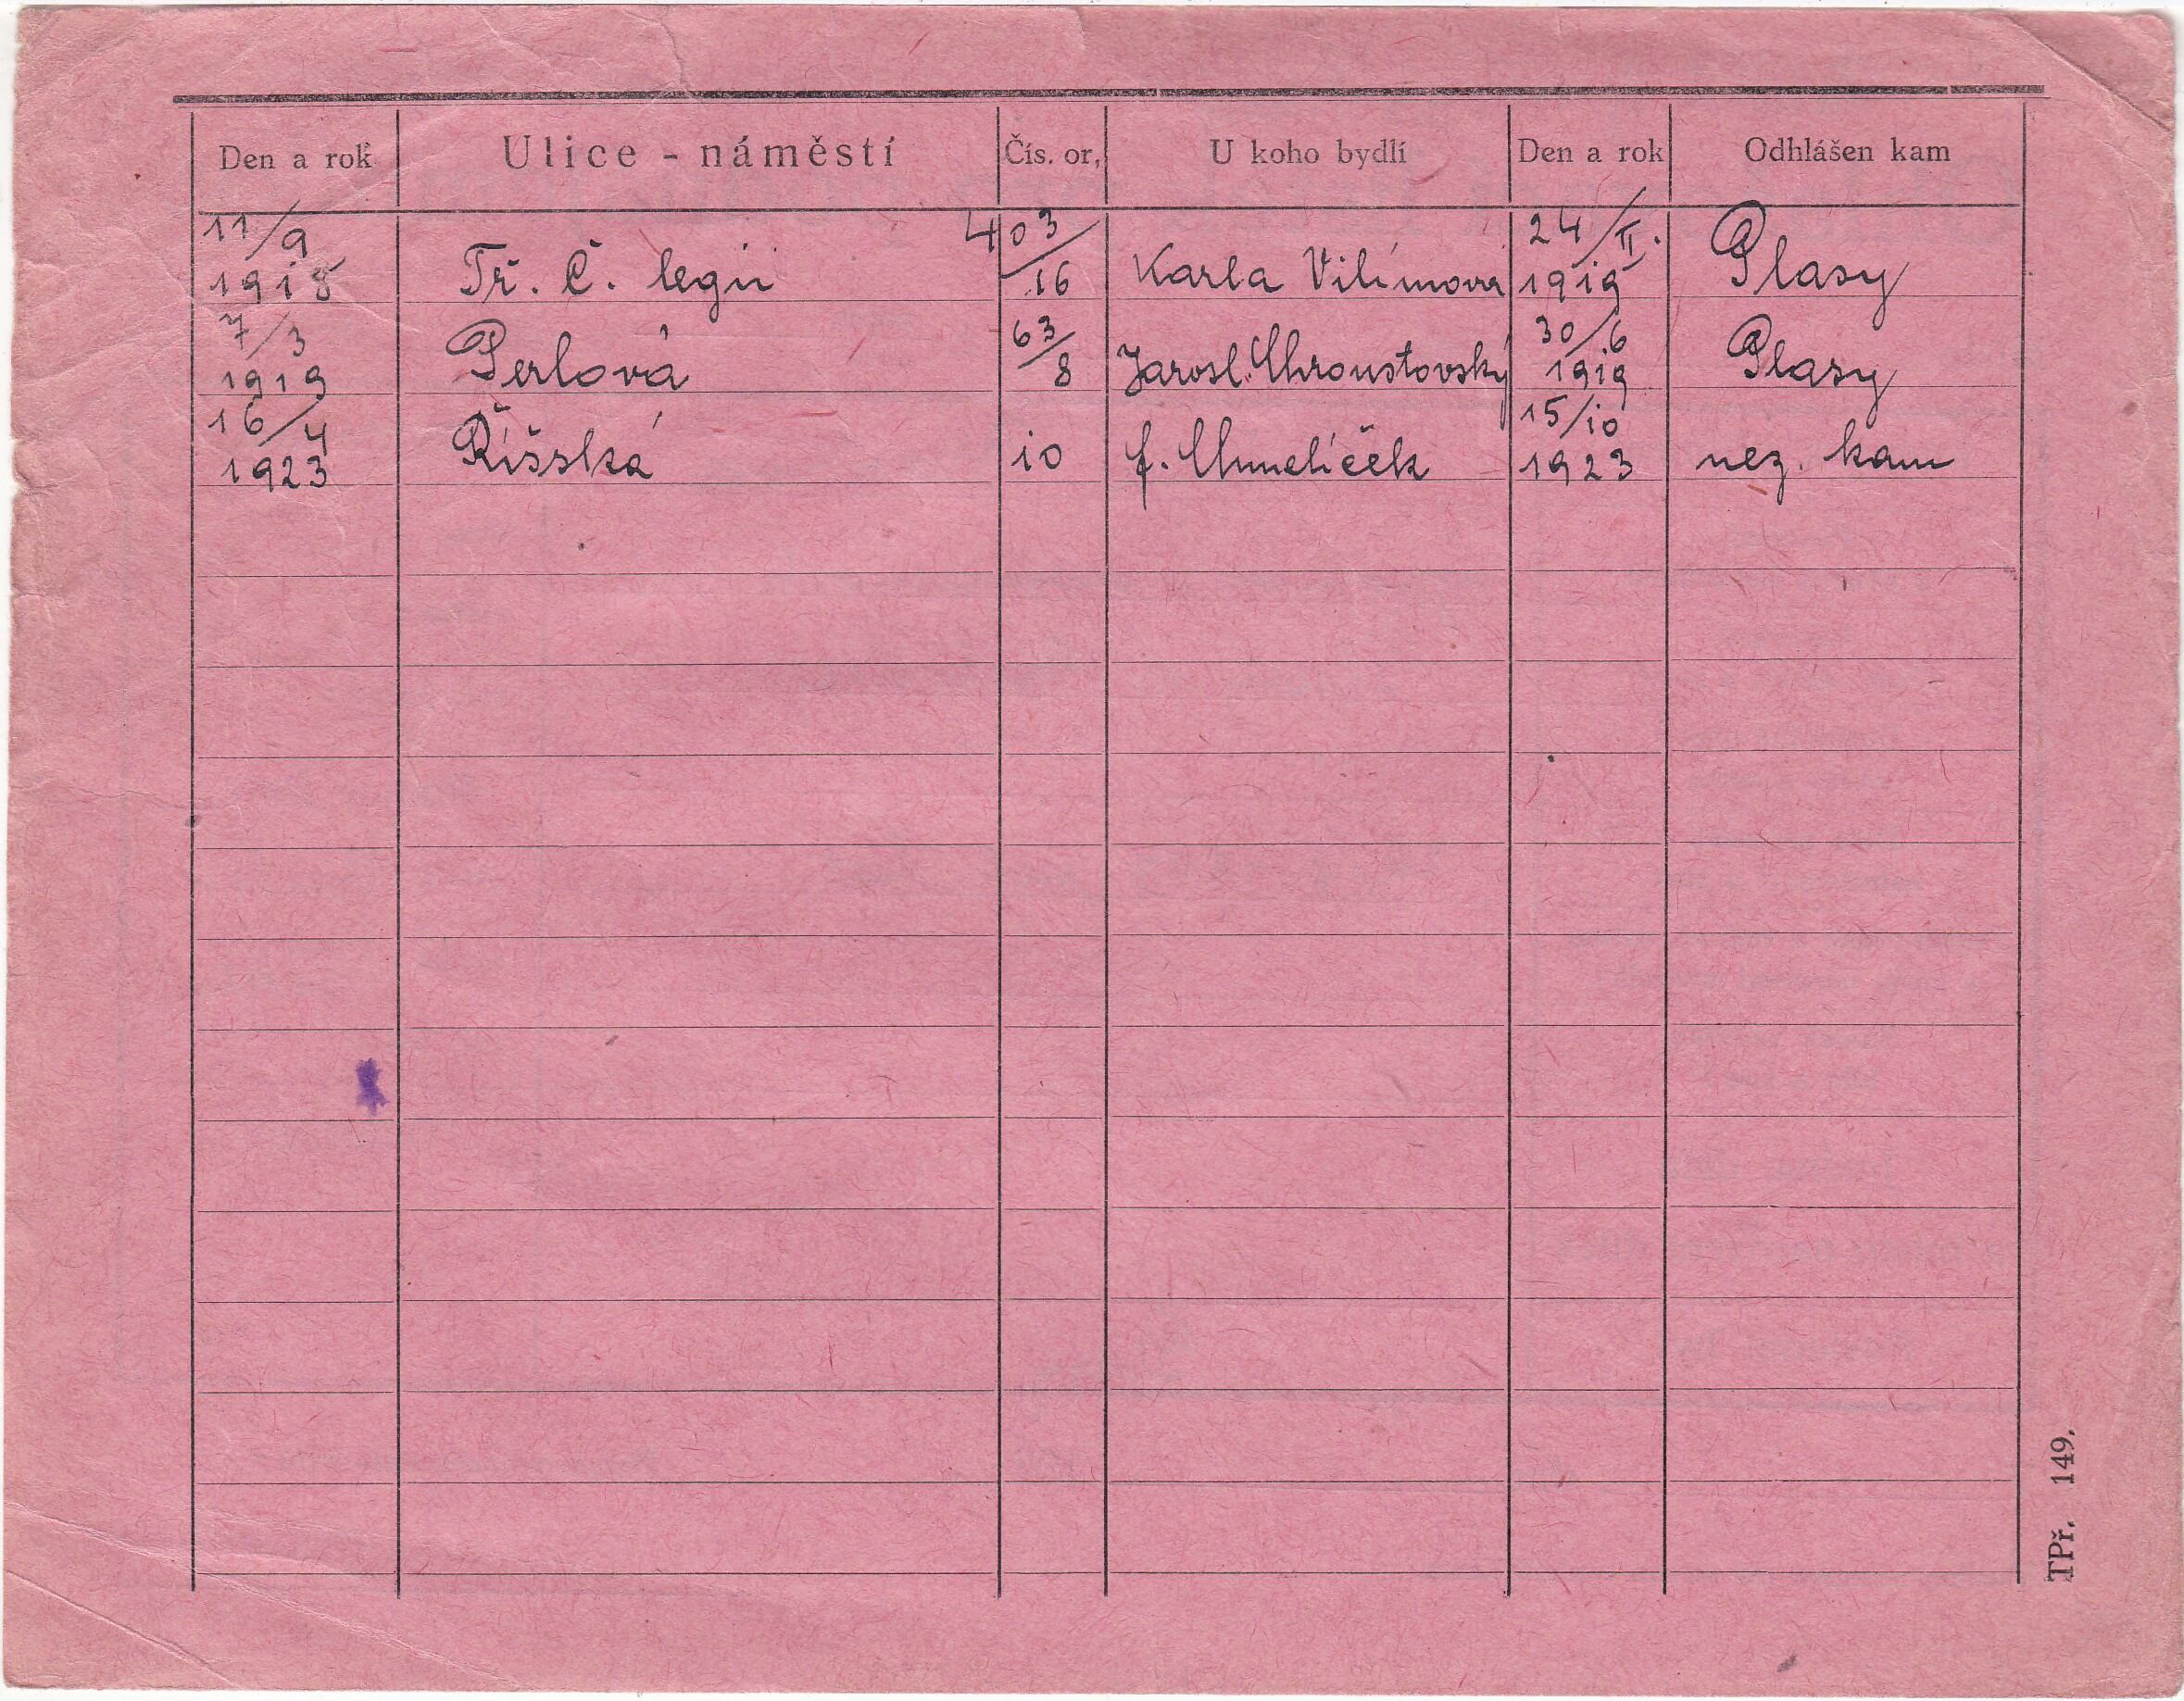 Den a rok Ulice - náměstí Čís. or, U koho bydlí Den a rok Odhlášen kam
11/9 403/ 24/II.
1918 Tř. Č. legií 16 Karla Vilímova 1919 Plasy
7/3 63/ 30/6
1919 Perlová 8 Jarosl. Chroustovský 1919 Plasy
16/4 15/10
1923 Říšská 10 f. Chmelíček 1923 nez. kam
TPř. 149.